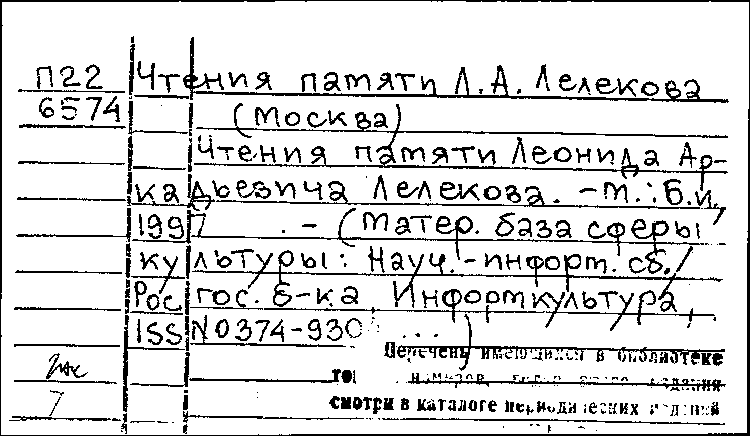 П22 Чтения памяти Л.А. Лелекова
6574 (Москва)
Чтения памяти Леонида Ар-
кадьевича Лелекова. - М.: Б.и.,
1997. - (Матер. база сферы
культуры: Науч.-информ. сб./
Рос. гос. б-ка, Информкультура,
ISSN 0374-930 ...)
Перечень имеющихся в библиотеке
номеров, издания
смотри в каталоге периодических изданий
7